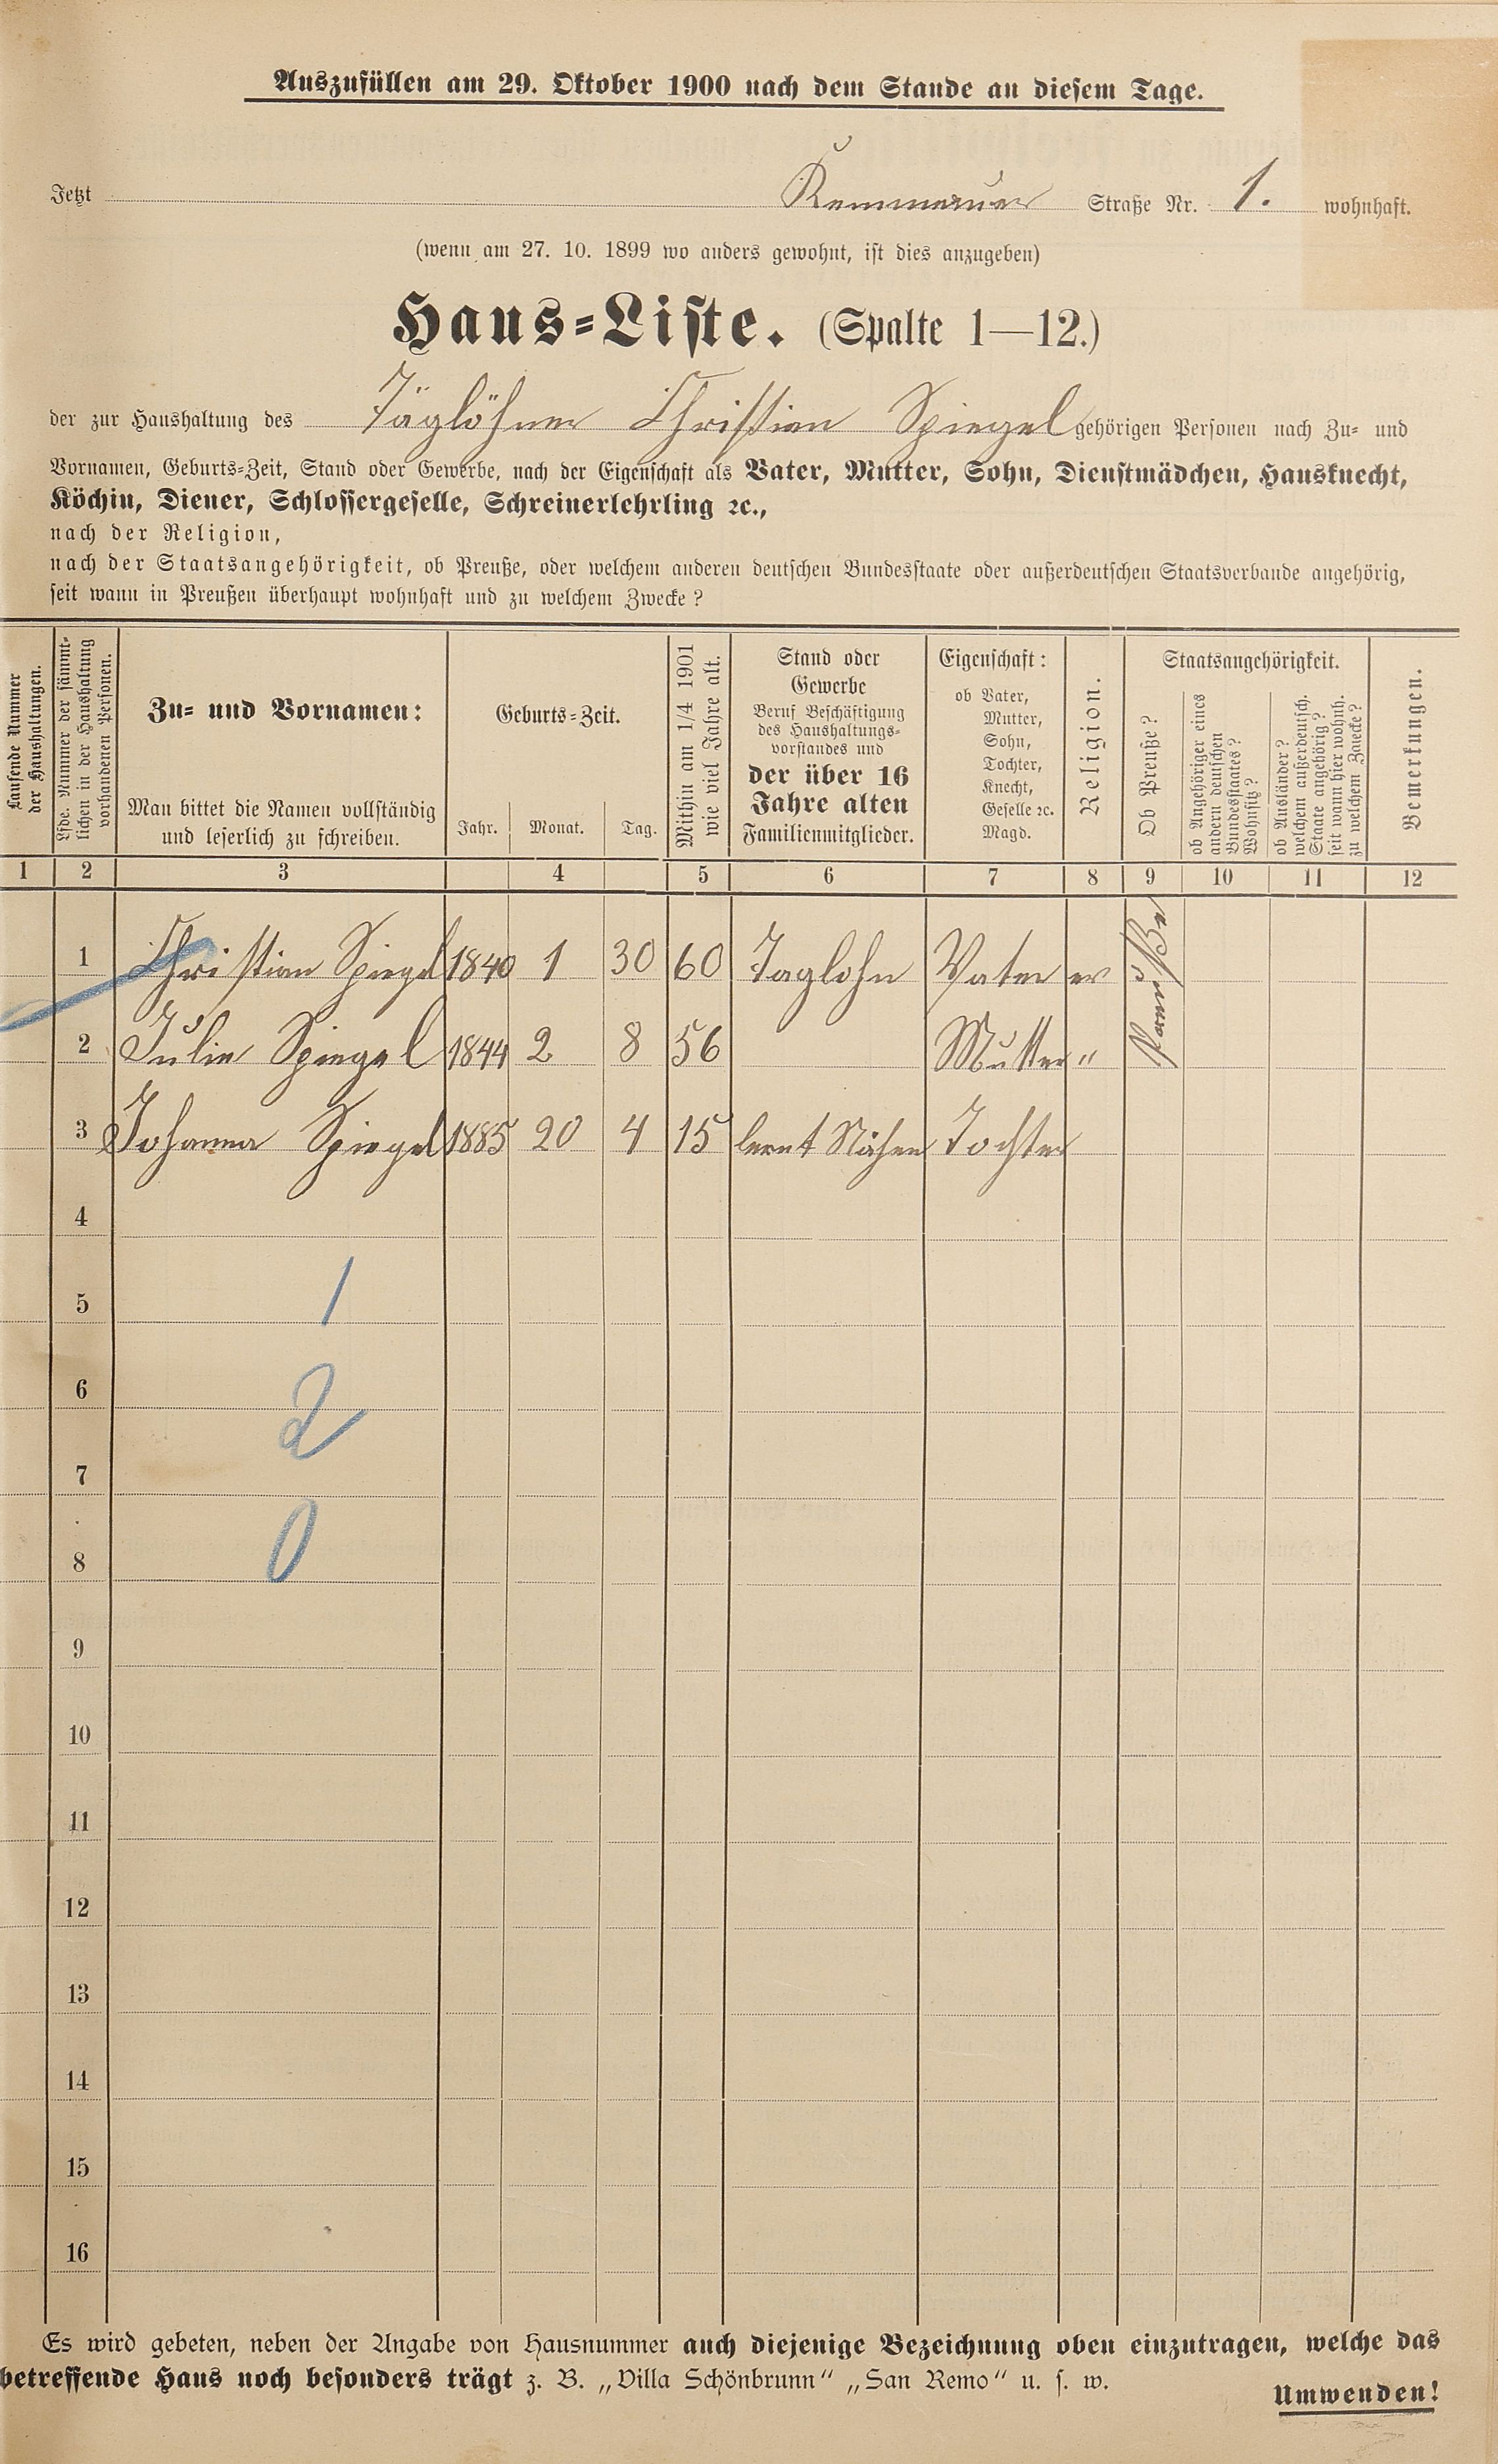 Auszufüllen am 29. Oktober 1900 nach dem Stande an diesem Tage.
Jetzt Straße Nr. 1. wohnhaft.
(wenn am 27. 10. 1899 wo anders gewohnt, ist dies anzugeben)
Haus=Liste. (Spalte 1—12.)
der zur Haushaltung des Täglöhner Christian Spiegel gehörigen Personen nach Zu= und
Vornamen, Geburts=Zeit, Stand oder Gewerbe, nach der Eigenschaft als Vater, Mutter, Sohn, Dienstmädchen, Hausknecht,
Köchin, Diener, Schlossergeselle, Schreinerlehrling ꝛc.,
nach der Religion,
nach der Staatsangehörigkeit, ob Preuße, oder welchem anderen deutschen Bundesstaate oder außerdeutschen Staatsverbande angehörig,
seit wann in Preußen überhaupt wohnhaft und zu welchem Zwecke?
Laufende Nummer
der Haushaltungen.
Lfde. Nummer der sämmt=
lichen in der Haushaltung
vorhandenen Personen.
Zu= und Vornamen:
Man bittet die Namen vollständig
und leserlich zu schreiben.
Geburts=Zeit.
Jahr. Monat. Tag.
Mithin am 1/4 1901
wie viel Jahre alt.
Stand oder
Gewerbe
Beruf Beschäftigung
des Haushaltungs=
vorstandes und
der über 16
Jahre alten
Familienmitglieder.
Eigenschaft:
ob Vater,
Mutter,
Sohn,
Tochter,
Knecht,
Geselle ꝛc.
Magd.
Religion.
Staatsangehörigkeit.
Ob Preuße?
ob Angehöriger eines
andern deutschen
Bundesstaates?
Wohnsitz?
ob Ausländer?
welchem außerdeutsch.
Staate angehörig?
seit wann hier wohnh.
zu welchem Zwecke?
Bemerkungen.
1 2 3 4 5 6 7 8 9 10 11 12
1 Christian Spiegel 1840 1 30 60 Taglohn Vater ev Preuße
2 Julie Spiegel 1844 2 8 56 Mutter "
3 Johanna Spiegel 1885 20 4 15 lernt Nähen Tochter
4
5
1
6
2
7
8
0
9
10
11
12
13
14
15
16
Es wird gebeten, neben der Angabe von Hausnummer auch diejenige Bezeichnung oben einzutragen, welche das
betreffende Haus noch besonders trägt z. B. „Villa Schönbrunn“ „San Remo“ u. s. w.
Umwenden!